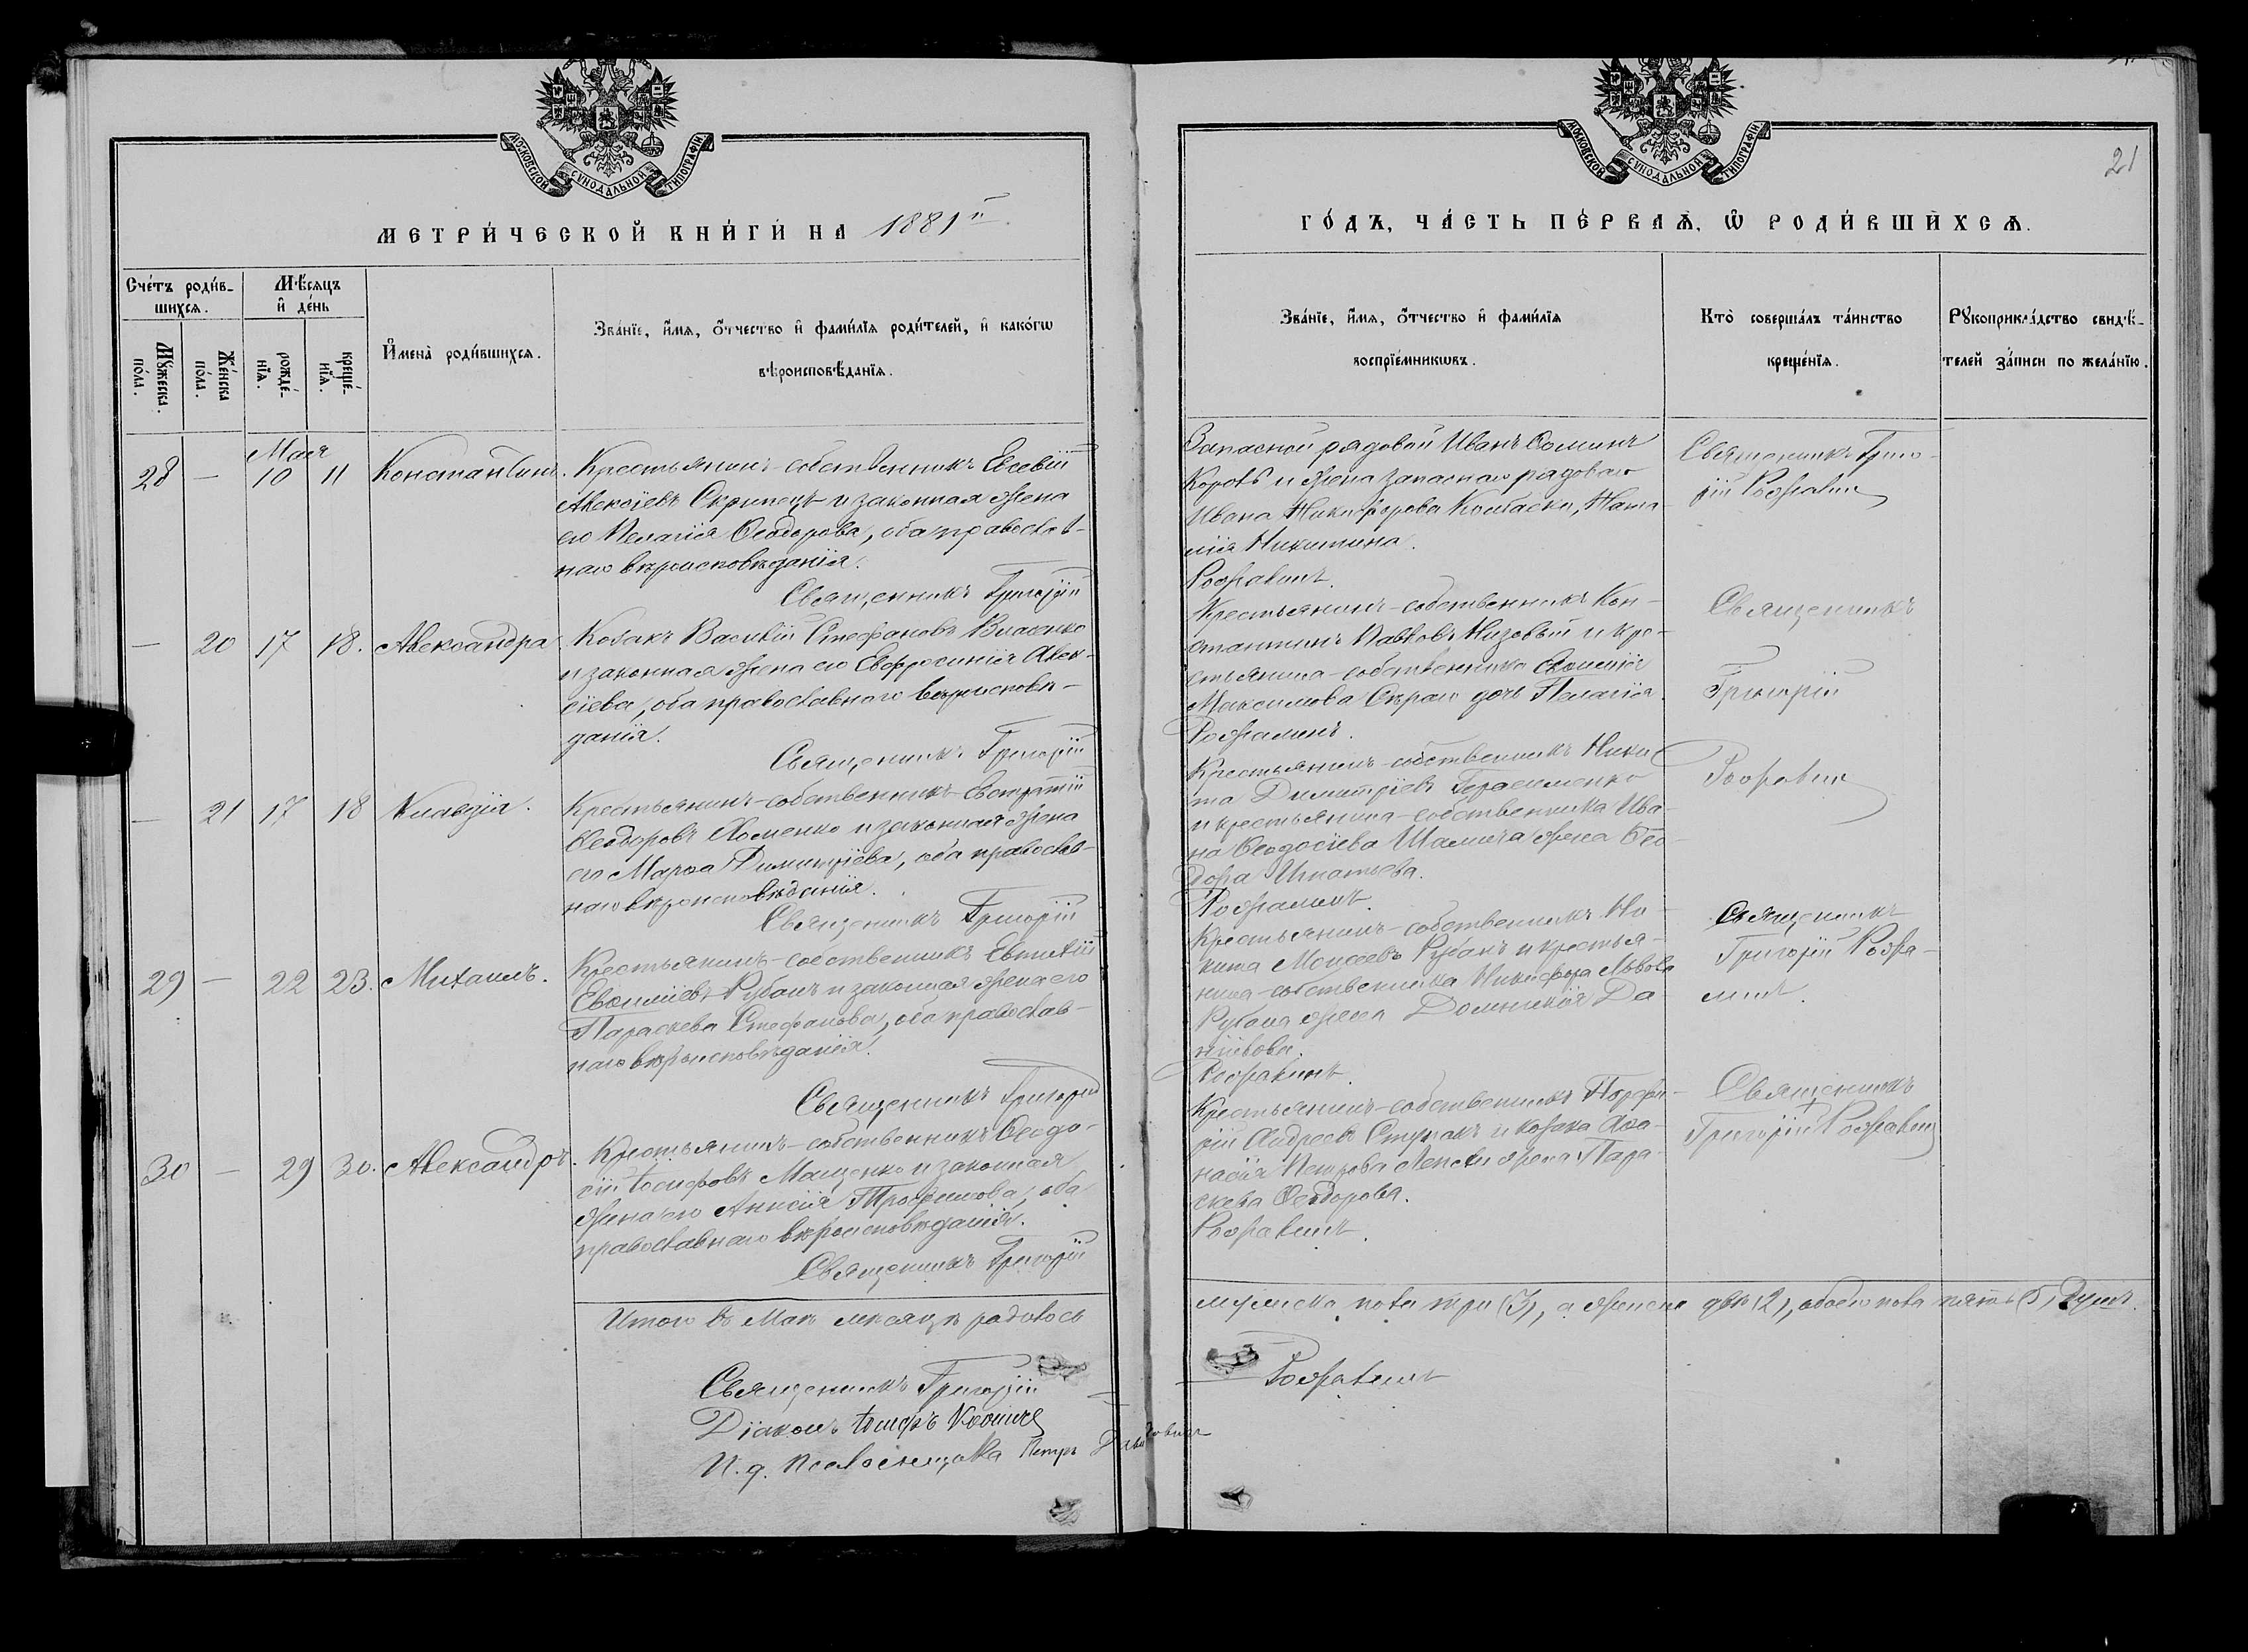 МОСКОВСКОЙ СУНОДАЛЬНОЙ ТИПОГРАФІИ
МЕТРИ́ЧЕСКОЙ КНИ́ГИ НА 1881й
Сче́тъ роди́в-
шихся.
Му́жеска.
по́ла.
Же́нска
по́ла.
Мѣ́сяцъ
и҆ де́нь
рожде́-
нїя.
креще́-
нїя.
И҆мена̀ роди́вшихся.
Зва́нїе, и҆́мя, ѻ҆́тчество и҆ фами́лїя роди́телей, и҆ како́гѡ
вѣроисповѣ́данїя.
Мая
28 — 10 11 Константинъ. Крестьянинъ-собственникъ Евсевій
Алексіевъ Скрипецъ и законная жена
его Пелагія Ѳеодорова, оба православ-
наго вѣроисповѣданія.
Священникъ Григорій
— 20 17 18. Александра Козакъ Василій Стефановъ Власенко
и законная жена его Евфросинія Алек-
сіева, оба православнаго вѣроисповѣ-
данія.
Священникъ Григорій
— 21 17 18 Клавдія. Крестьянинъ-собственникъ Евстратій
Ѳеодоровъ Хоменко и законная жена
его Марѳа Димитріева, оба православ-
наго вѣроисповѣданія.
Священникъ Григорій
29 — 22 23. Михаилъ. Крестьянинъ-собственникъ Евтихій
Евѳиміевъ Рубанъ и законная жена его
Параскева Стефанова, оба православ-
наго вѣроисповѣданія.
Священникъ Григорій
30 — 29 30. Александръ. Крестьянинъ-собственникъ Ѳеодо-
сій Іосифовъ Маценко и законная
жена его Анисія Трофимова, оба
православнаго вѣроисповѣданія.
Священникъ Григорій
Итого въ Маѣ мѣсяцѣ родилось
Священникъ Григорій
Діаконъ Іосифъ
И. д. псаломщика Петръ
МОСКОВСКОЙ СУНОДАЛЬНОЙ ТИПОГРАФІИ
21
ГО́ДЪ, ЧА́СТЬ ПЕ́РВАЯ, Ѡ҆ РОДИ́ВШИХСЯ.
Зва́нїе, и҆́мя, ѻ҆́тчество и҆ фами́лїя
воспрїе́мникѡвъ.
Кто̀ соверша́лъ та́инство
креще́нїя.
Рꙋкоприкла́дство свидѣ́-
телей за́писи по жела́нїю.
Запасной рядовой Иванъ Ѳоминъ
и жена запаснаго рядоваго
Ивана Никифорова Колбаски, Ната-
лія Никитина.
Рожалинъ.
Священникъ Григо-
рій Рожалин
Крестьянинъ-собственникъ Кон-
стантинъ Павловъ Низовый и кре-
стьянина-собственника
Максимова дочь Пелагія.
Рожалинъ.
Священникъ
Григорій
Рожалин
Крестьянинъ-собственникъ Ники-
та Димитріевъ Герасименко
и крестьянина-собственника Ива-
на Ѳеодосіева жена Ѳео-
дора Игнатьева.
Рожалинъ.
Крестьянинъ-собственникъ Ни-
кита Моисеевъ Рубанъ и крестья-
нина-собственника Никифора Львова
Рубана жена Домникія Да-
ніилова.
Рожалинъ.
Священникъ
Григорій Рожа-
линъ.
Крестьянинъ-собственникъ Порфи-
рій Андреевъ Ступакъ и козака Аѳа-
насія Петрова жена Пара-
скева Ѳеодорова.
Рожалинъ.
Священникъ
Григорій Рожалин
мужеска пола три (3), а женска двѣ (2), обоего пола пять (5) душъ.
Рожалинъ